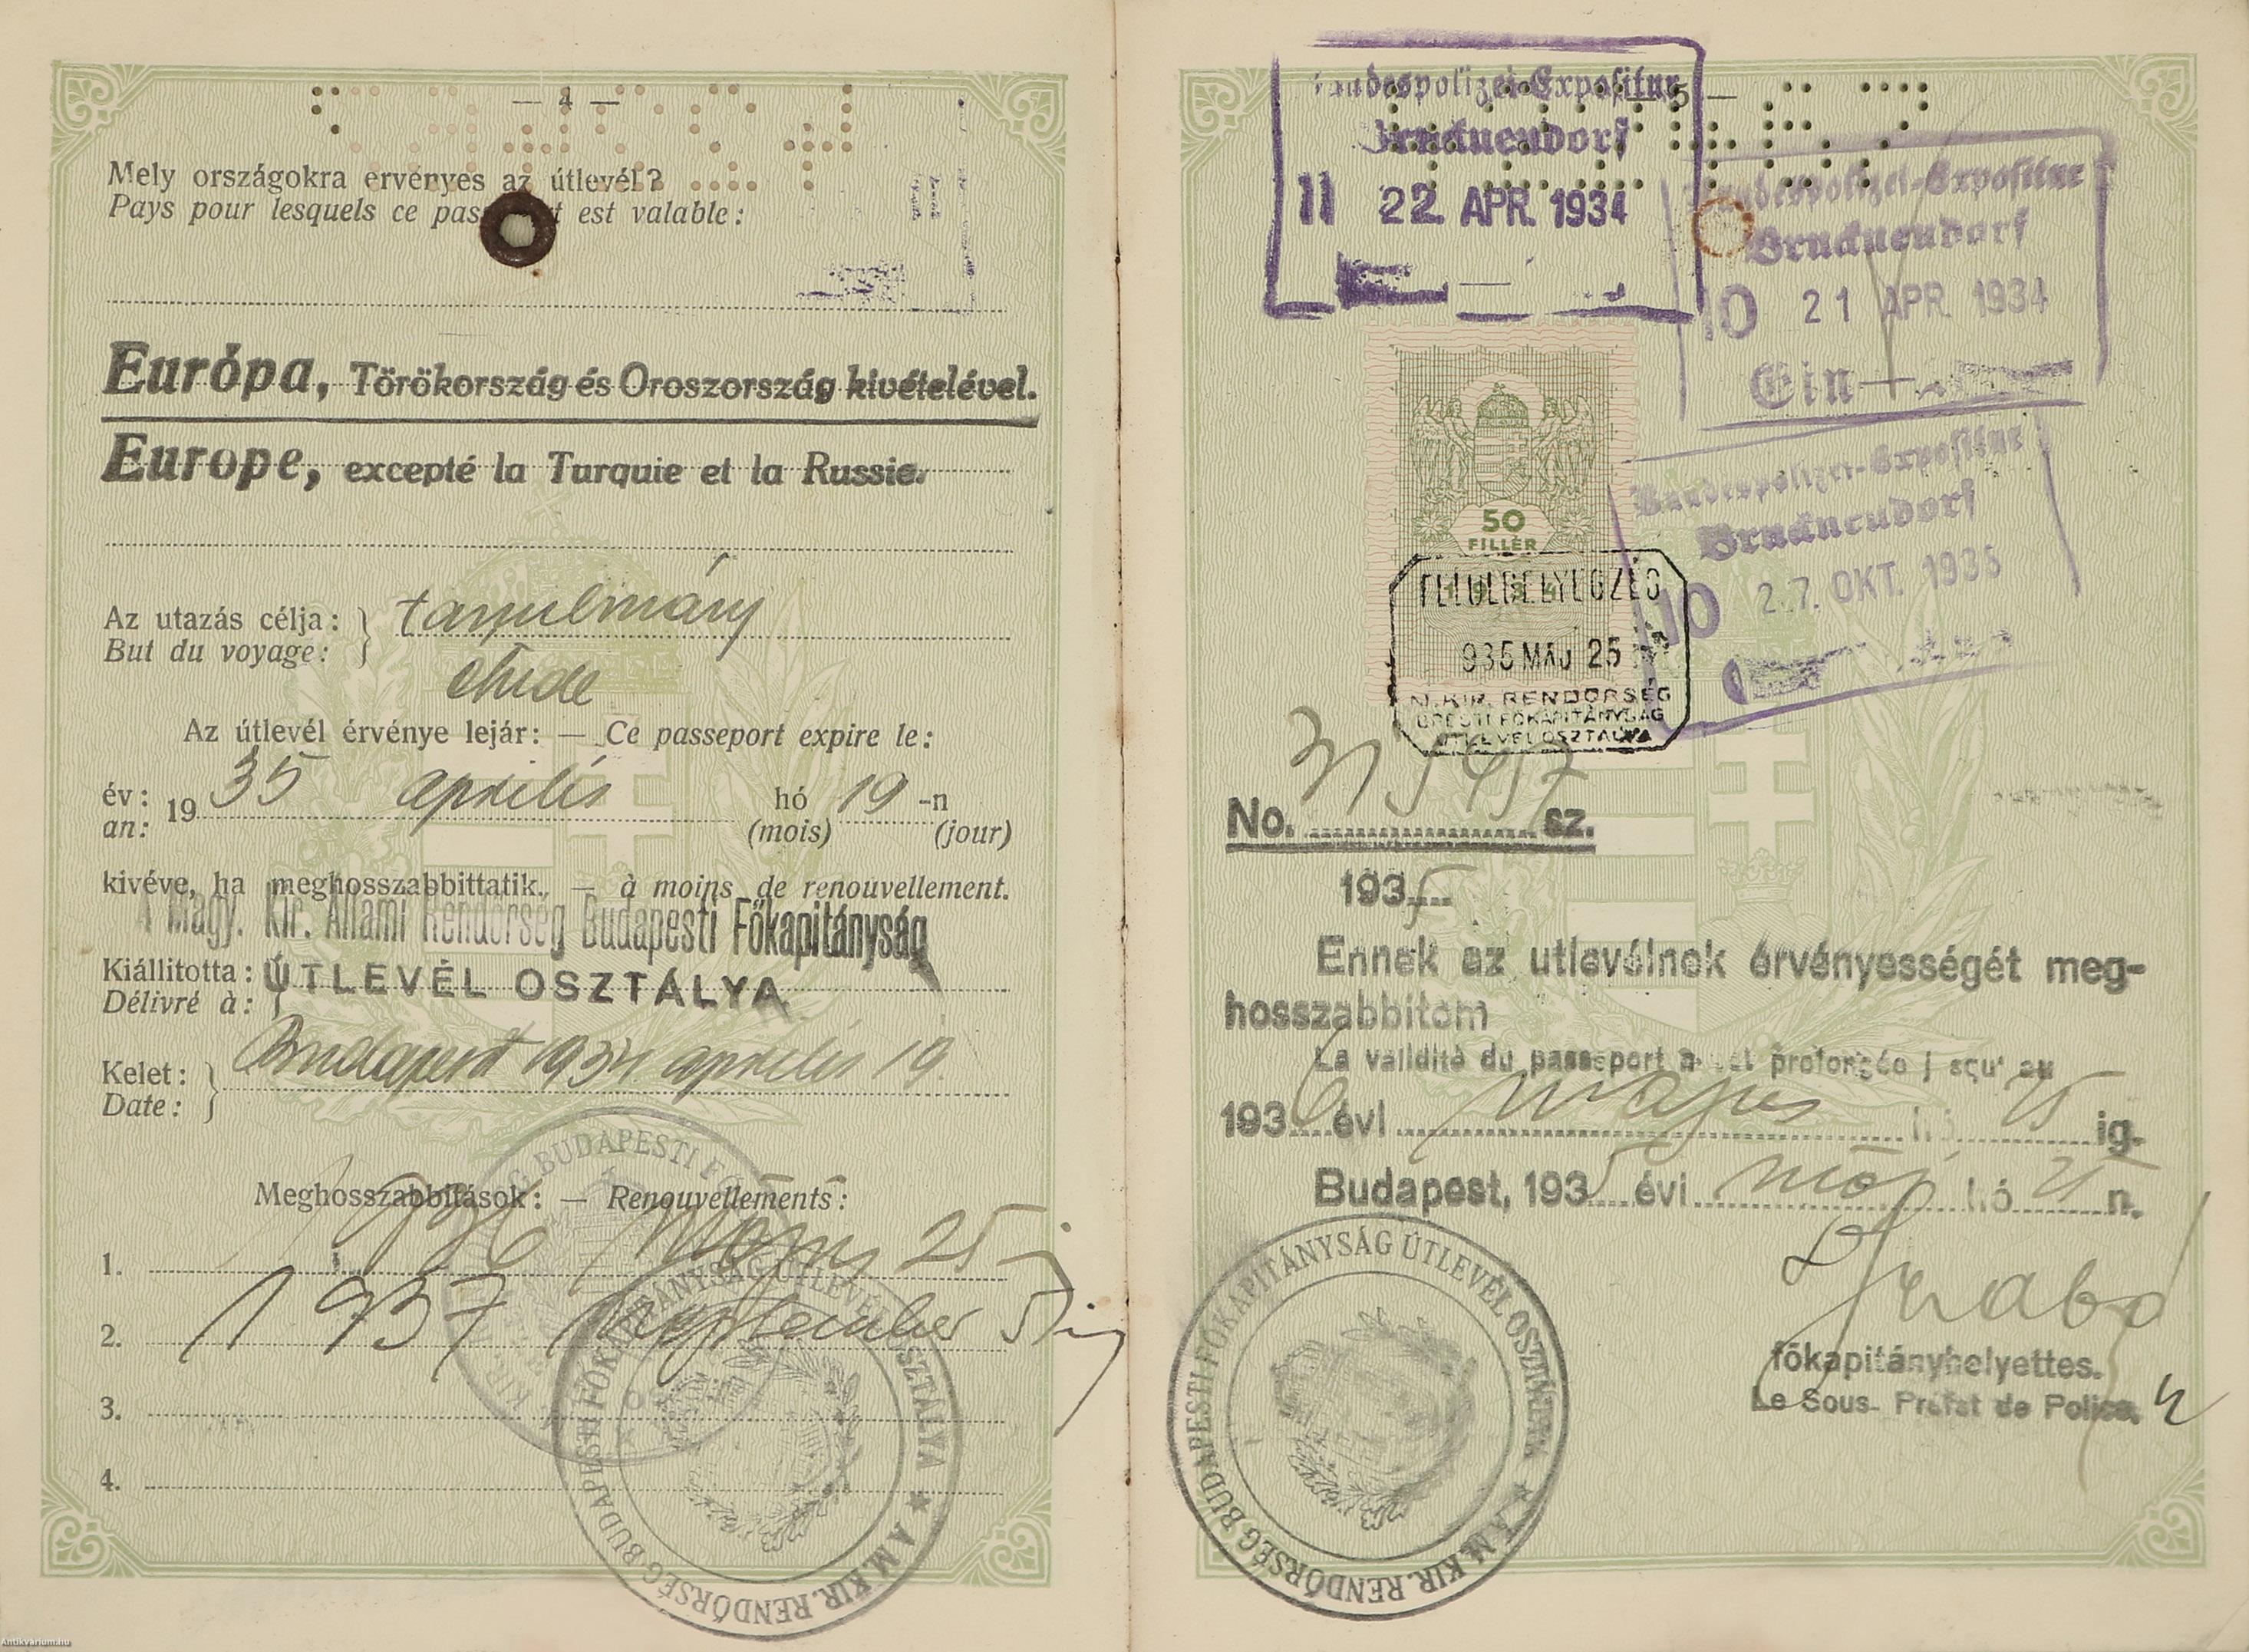 — 4 —
Mely országokra érvényes az útlevél?
Pays pour lesquels ce pas t est valable:
Európa, Törökország és Oroszország kivételével.
Europe, excepté la Turquie et la Russie.
Az utazás célja: tanulmány
But du voyage: étude
Az útlevél érvénye lejár: — Ce passeport expire le:
év: an: 19 35 április hó (mois) 19 -n (jour)
kivéve, ha meghosszabbittatik. — à moins de renouvellement.
A Magy. Kir. Állami Rendőrség Budapesti Főkapitányság
Kiállitotta: ÚTLEVÉL OSZTÁLYA
Délivré à:
Kelet: Budapest 1934 április 19.
Date:
Meghosszabbitások: — Renouvellements:
1. 1936 május 25 ig
2. 1937 september 5 ig
3.
4.
BUDAPESTI
A M. KIR. RENDŐRSÉG BUDAPESTI FŐKAPITÁNYSÁG ÚTLEVÉL OSZTÁLYA
5 —
Bundespolizei-Expositur
Bruckneudorf
11 22 APR. 1934
Bundespolizei-Expositur
Bruckneudorf
10 21 APR. 1934
Ein
Bundespolizei-Expositur
Bruckneudorf
10 27. OKT. 1935
50
FILLÉR
FELÜLBÉLYEGZÉS
935 MÁJ 25
M. KIR. RENDŐRSÉG
BPESTI FŐKAPITÁNYSÁG
ÚTLEVÉL OSZTÁLYA
No. sz.
1935
Ennek az utlevélnek érvényességét meg-
hosszabbitom
La validité du passeport a est prolongée j sçu' au
1936 évi május hó 25 ig.
Budapest, 1935 évi máj hó 25 n.
Szabó
főkapitányhelyettes.
Le Sous- Préfet de Police.
A M. KIR. RENDŐRSÉG BUDAPESTI FŐKAPITÁNYSÁG ÚTLEVÉL OSZTÁLYA
Antikvarium.hu